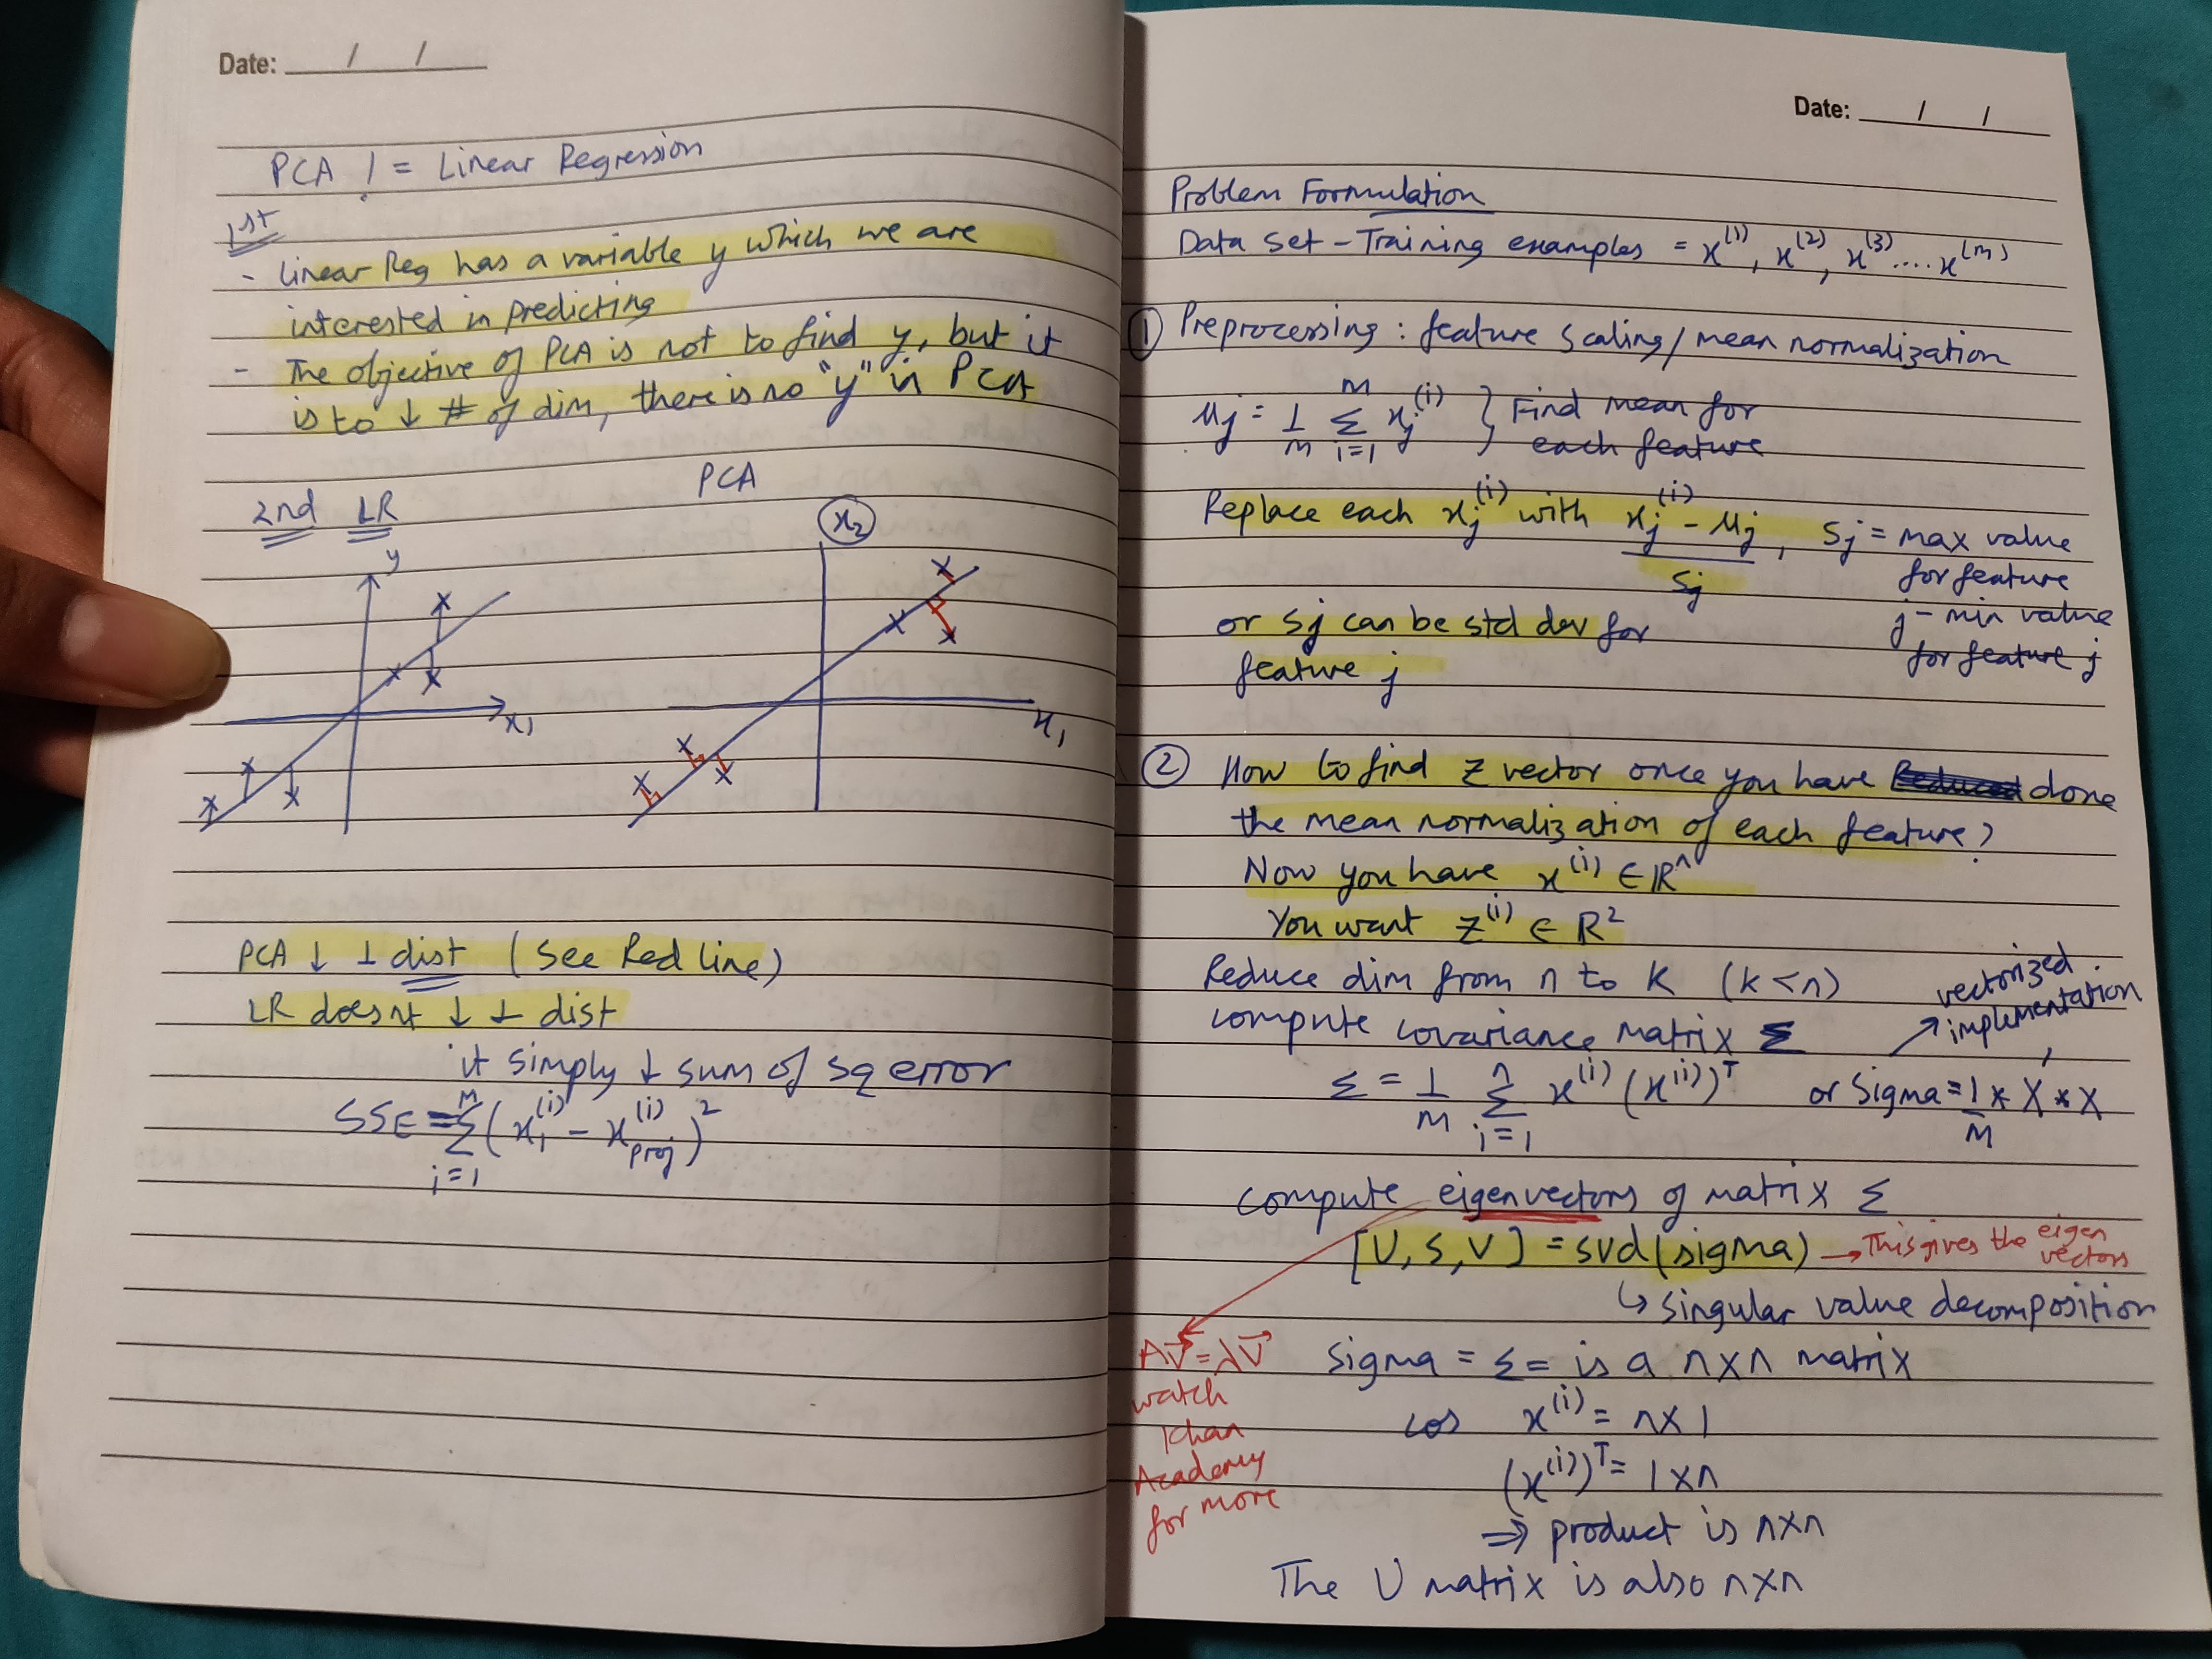 Date: __/__/__
PCA != Linear Regression
1st
- Linear Reg has a variable y which we are
interested in predicting
- The objective of PCA is not to find y, but it
is to ↓ # of dim, there is no "y" in PCA
2nd LR
PCA
y
x₁
x₂
x₁
PCA ↓ ⊥ dist (See Red line)
LR doesnt ↓ ⊥ dist
it simply ↓ sum of sq error
SSE = Σ_{i=1}^{M} (x₁^(i) - x_proj^(i))²
Date: __/__/__
Problem Formulation
Data set - Training examples = x^(1), x^(2), x^(3) .... x^(m)
① Preprocessing: feature scaling/mean normalization
μj = 1/M Σ_{i=1}^{M} xj^(i) } Find mean for
each feature
Replace each xj^(i) with (xj^(i) - μj)/Sj, Sj = max value
for feature
j - min value
for feature j
or Sj can be std dev for
feature j
② How to find z vector once you have done
the mean normalization of each feature?
Now you have x^(i) ∈ ℝ^n
You want z^(i) ∈ R²
Reduce dim from n to K (k < n)
compute covariance matrix Σ
vectorized
implementation
Σ = 1/M Σ_{i=1}^{n} x^(i) (x^(i))^T or Sigma = 1/M * X' * X
compute eigenvectors of matrix Σ
[U, S, V] = svd(sigma) → This gives the eigen
vectors
↳ singular value decomposition
Av⃗ = λv⃗
watch
Khan
Academy
for more
Sigma = Σ = is a n×n matrix
cos x^(i) = n×1
(x^(i))^T = 1×n
⇒ product is n×n
The U matrix is also n×n